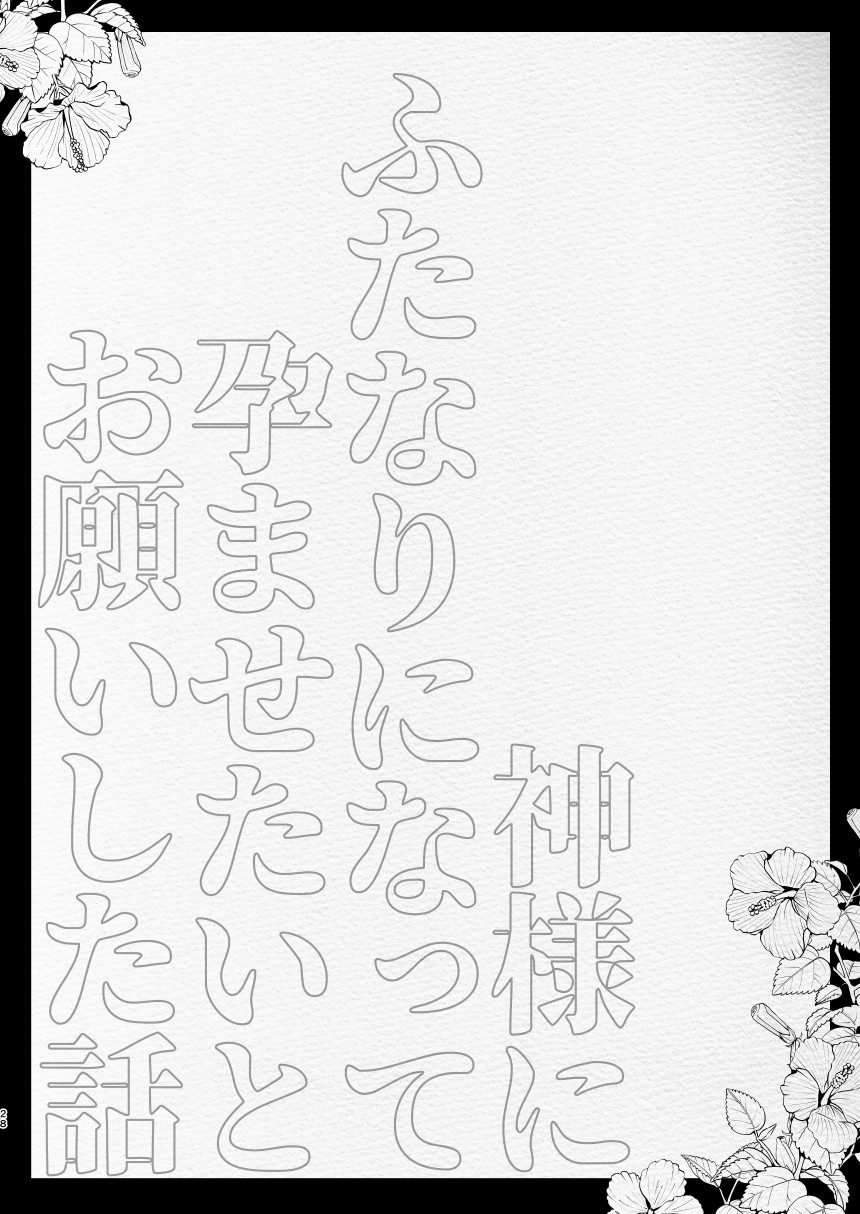 神様に
ふたなりになって
孕ませたいと
お願いした話
28